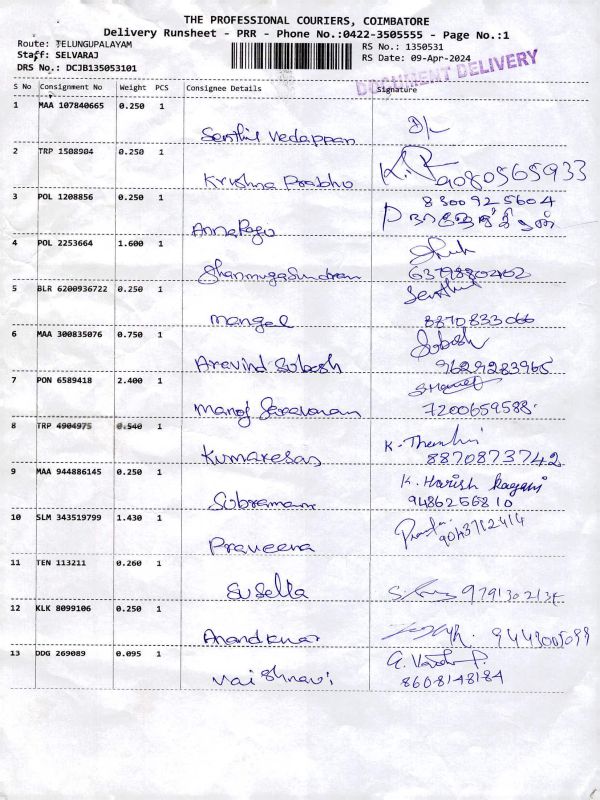 THE PROFESSIONAL COURIERS, COIMBATORE
Delivery Runsheet - PRR - Phone No.:0422-3505555 - Page No.:1
Route: TELUNGUPALAYAM RS No.: 1350531
Staff: SELVARAJ RS Date: 09-Apr-2024
DRS No.: DCJB135053101
DOCUMENT DELIVERY
S No Consignment No Weight PCS Consignee Details Signature
1 MAA 107840665 0.250 1
Senthil Vedappan
2 TRP 1508904 0.250 1
Krishna Prabhu 9080565933
3 POL 1208856 0.250 1 8300925604
Anna Raju
4 POL 2253664 1.600 1
Shanmuga Sundram 6379880402
5 BLR 6200936722 0.250 1 Senthil
Mangal 8870833066
6 MAA 300835076 0.750 1 Subash
Aravind Subash 9629283965
7 PON 6589418 2.400 1
Manoj Saravanan 7200659588
8 TRP 4904975 0.540 1 K. Thenhi
Kumaresas 8870873742
9 MAA 944886145 0.250 1 K. Harish Ragavi
Subramani 9486256810
10 SLM 343519799 1.430 1
Praveena 9043712414
11 TEN 113211 0.260 1
Susella 9791302134
12 KLK 8099106 0.250 1
Anandkumar 9449005099
13 DDG 269089 0.095 1
Vaishnavi 8608148184